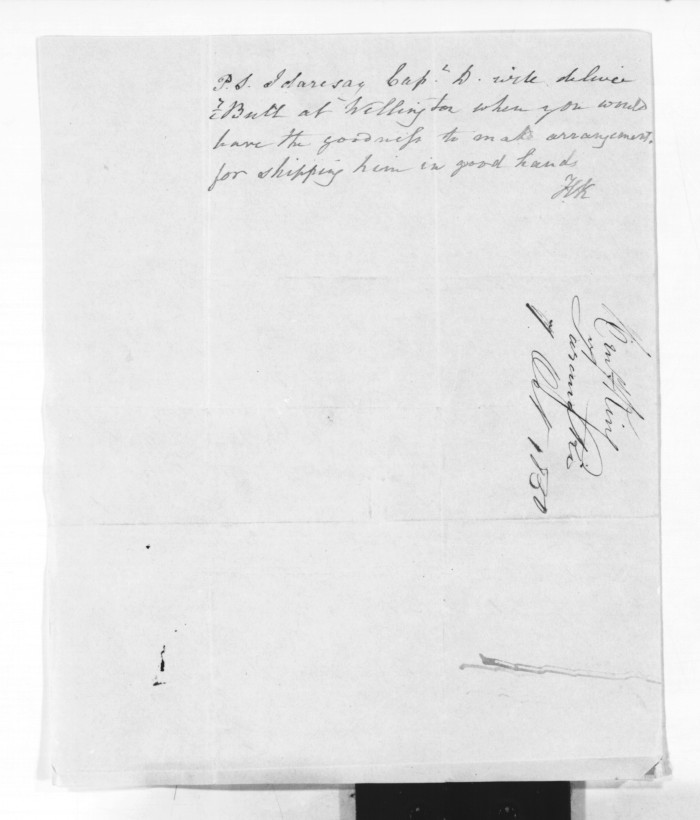 P.S. I daresay Capt. D. will deliver
ye Bull at Wellington when you would
have the goodness to make arrangements
for shipping him in good hands
HK
Henry King
Taranaki
7 Oct 1850